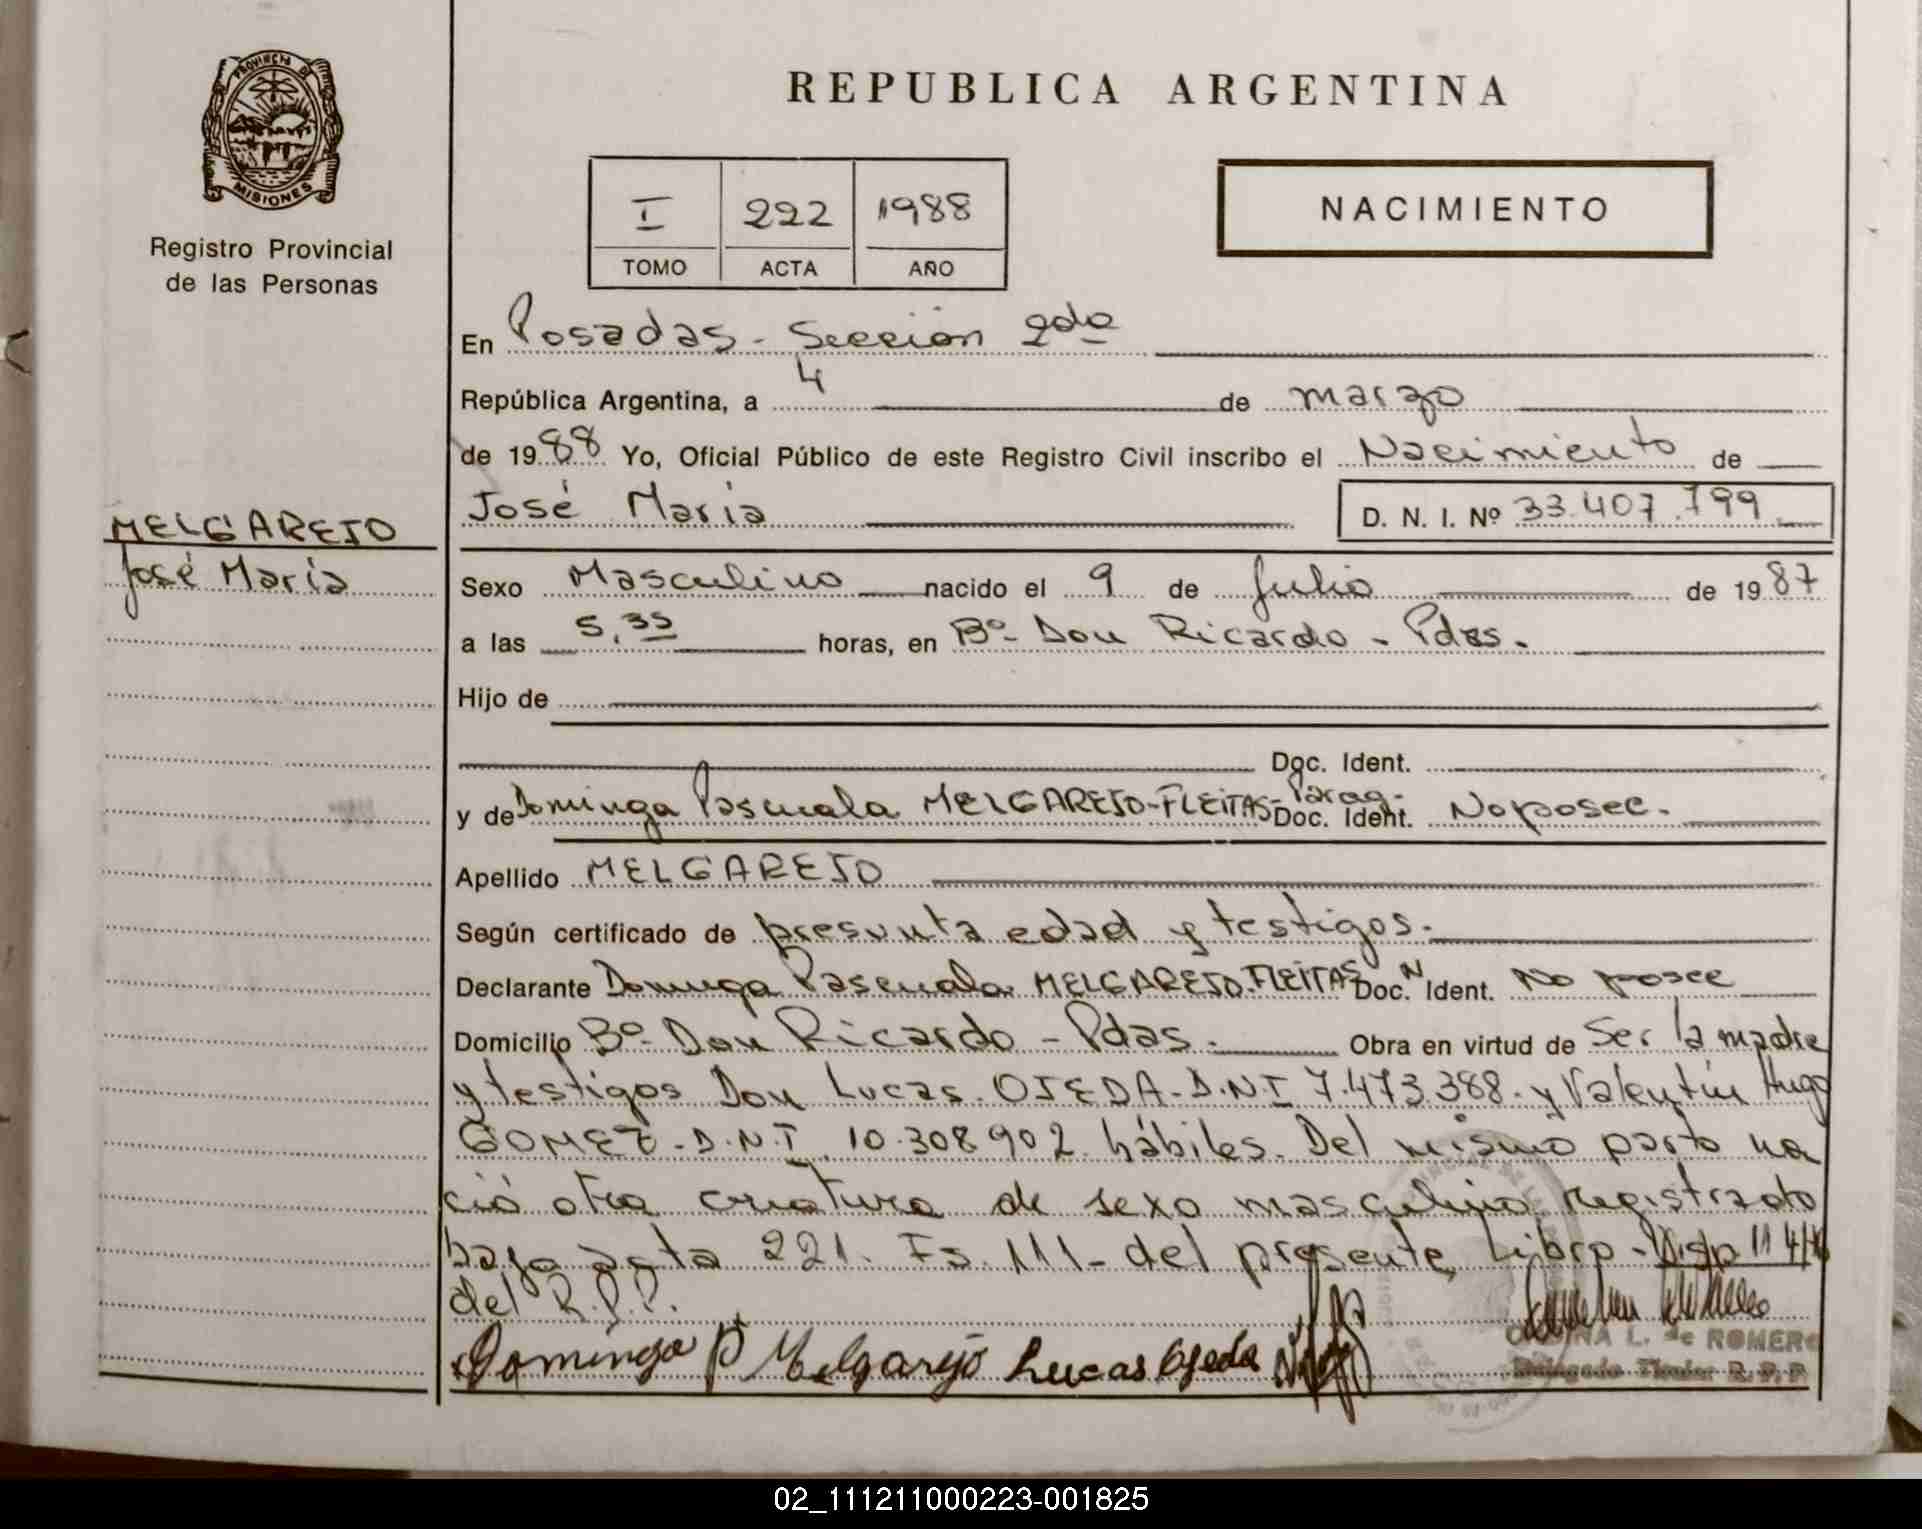 PROVINCIA DE
MISIONES
Registro Provincial
de las Personas
REPUBLICA ARGENTINA
I 222 1988
TOMO ACTA AÑO
NACIMIENTO
En Posadas - Sección 2da
República Argentina, a 4 de marzo
de 1988 Yo, Oficial Público de este Registro Civil inscribo el Nacimiento de
José María D. N. I. Nº 33.407.799
MELGAREJO
José María
Sexo Masculino nacido el 9 de Julio de 1987
a las 5,35 horas, en Bº Don Ricardo - Pdas.
Hijo de
Doc. Ident.
y de Dominga Pascuala MELGAREJO-FLEITAS- Parag- Doc. Ident. No posee.
Apellido MELGAREJO
Según certificado de presunta edad y testigos.
Declarante Dominga Pascuala MELGAREJO-FLEITAS Doc. N Ident. No posee
Domicilio Bº Don Ricardo - Pdas. Obra en virtud de Ser la madre
y testigos Don Lucas OJEDA - D.N.I 7.473.388. y Valentín Hugo
GOMEZ - D.N.I. 10.308.902 hábiles. Del mismo parto na
ció otra criatura de sexo masculino registrado
bajo acta 221. Fs. 111- del presente Libro - Disp. 11
del R.P.P.
Dominga P Melgarejo Lucas Ojeda
L. de ROMERO
Delegado Titular R. P. P.
02_111211000223-001825